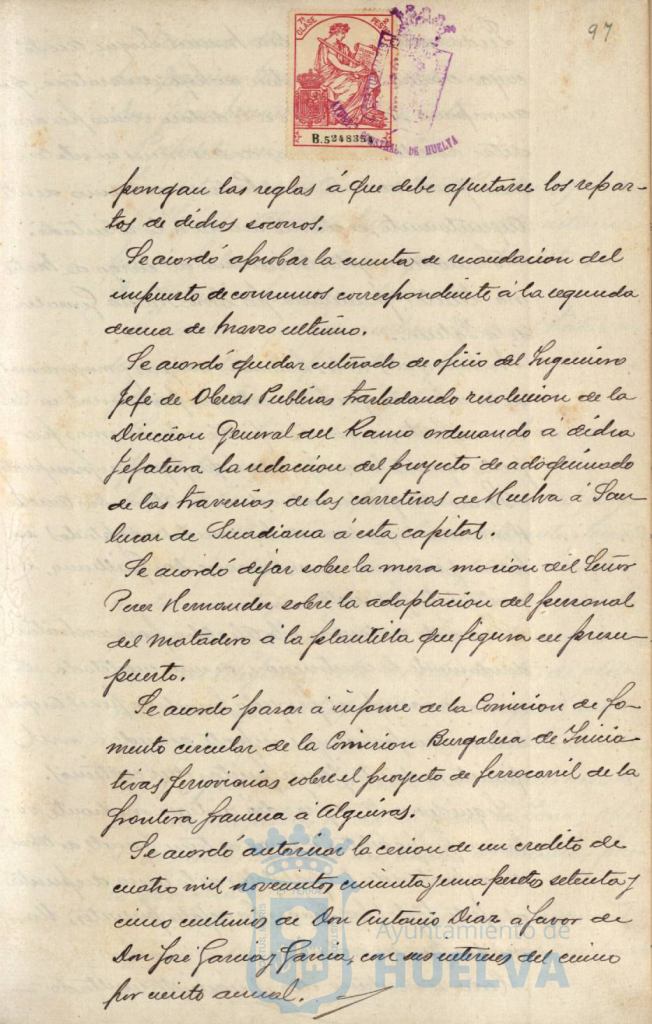 97
7ª CLASE 2 PESETAS
B.5248354
HUELVA
pongan las reglas á que debe ajustarse los repar-
tos de dichos socorros.
Se acordó aprobar la cuenta de recaudacion del
impuesto de consumos correspondiente á la segunda
decena de Marzo ultimo.
Se acordó quedar enterado de oficio del Ingeniero
Jefe de Obras Publicas trasladando resolucion de la
Direccion General del Ramo ordenando á dicha
Jefatura la redaccion del proyecto de adoquinado
de las travesias de las carreteras de Huelva á San-
lucar de Guadiana á esta capital.
Se acordó dejar sobre la mesa mocion del Señor
Perez Hernandez sobre la adaptacion del personal
del Matadero á la plantilla que figura en presu-
puesto.
Se acordó pasar á informe de la Comision de fo-
mento circular de la Comision Burgalesa de Inicia-
tivas ferroviarias sobre el proyecto de ferrocarril de la
frontera francesa á Algeciras.
Se acordó autorizar la cesion de un credito de
cuatro mil novecientos cincuenta y una pesetas setenta y
cinco centimos de Don Antonio Diaz á favor de
Don José Garcia y Garcia, con sus intereses del cinco
por ciento anual.
Ayuntamiento de
HUELVA